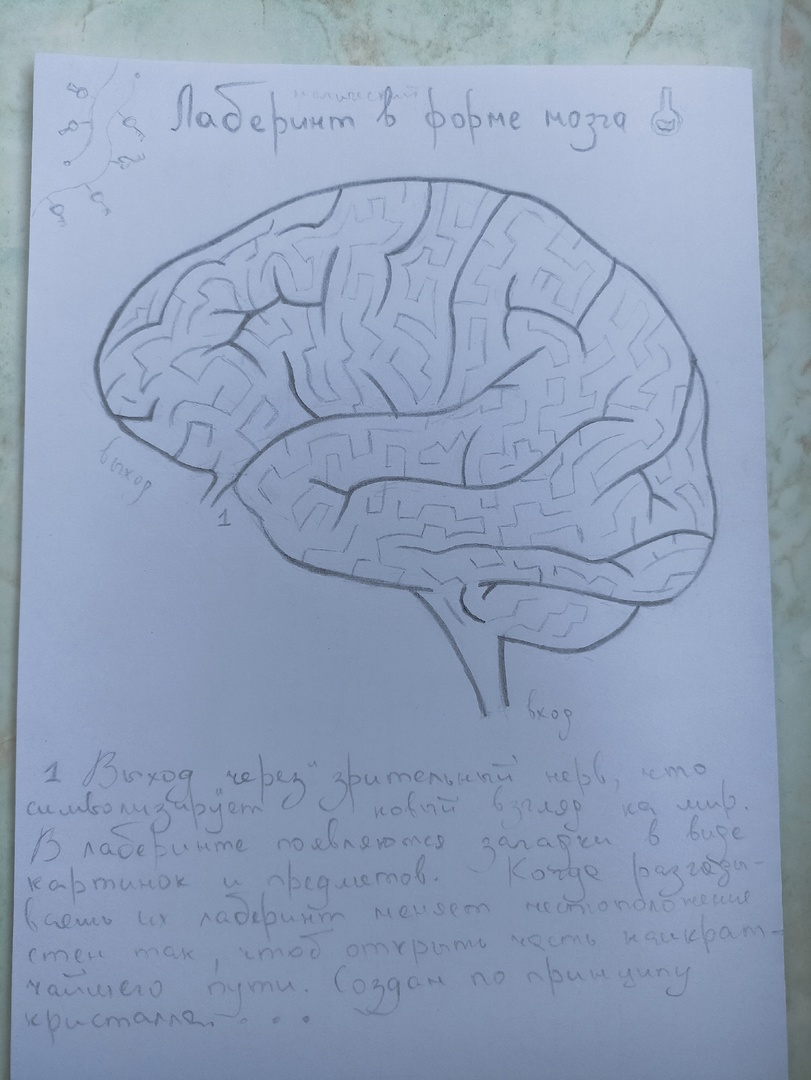 магический
Лаберинт в форме мозга
выход
1
вход
1 Выход "через" зрительный нерв, что
символизирует новый взгляд на мир.
В лаберинте появляются загадки в виде
картинок и предметов. Когда разгады-
ваешь их лаберинт меняет местоположение
стен так, чтоб открыть часть наикрат-
чайшего пути. Создан по принципу
кристалла. . . .